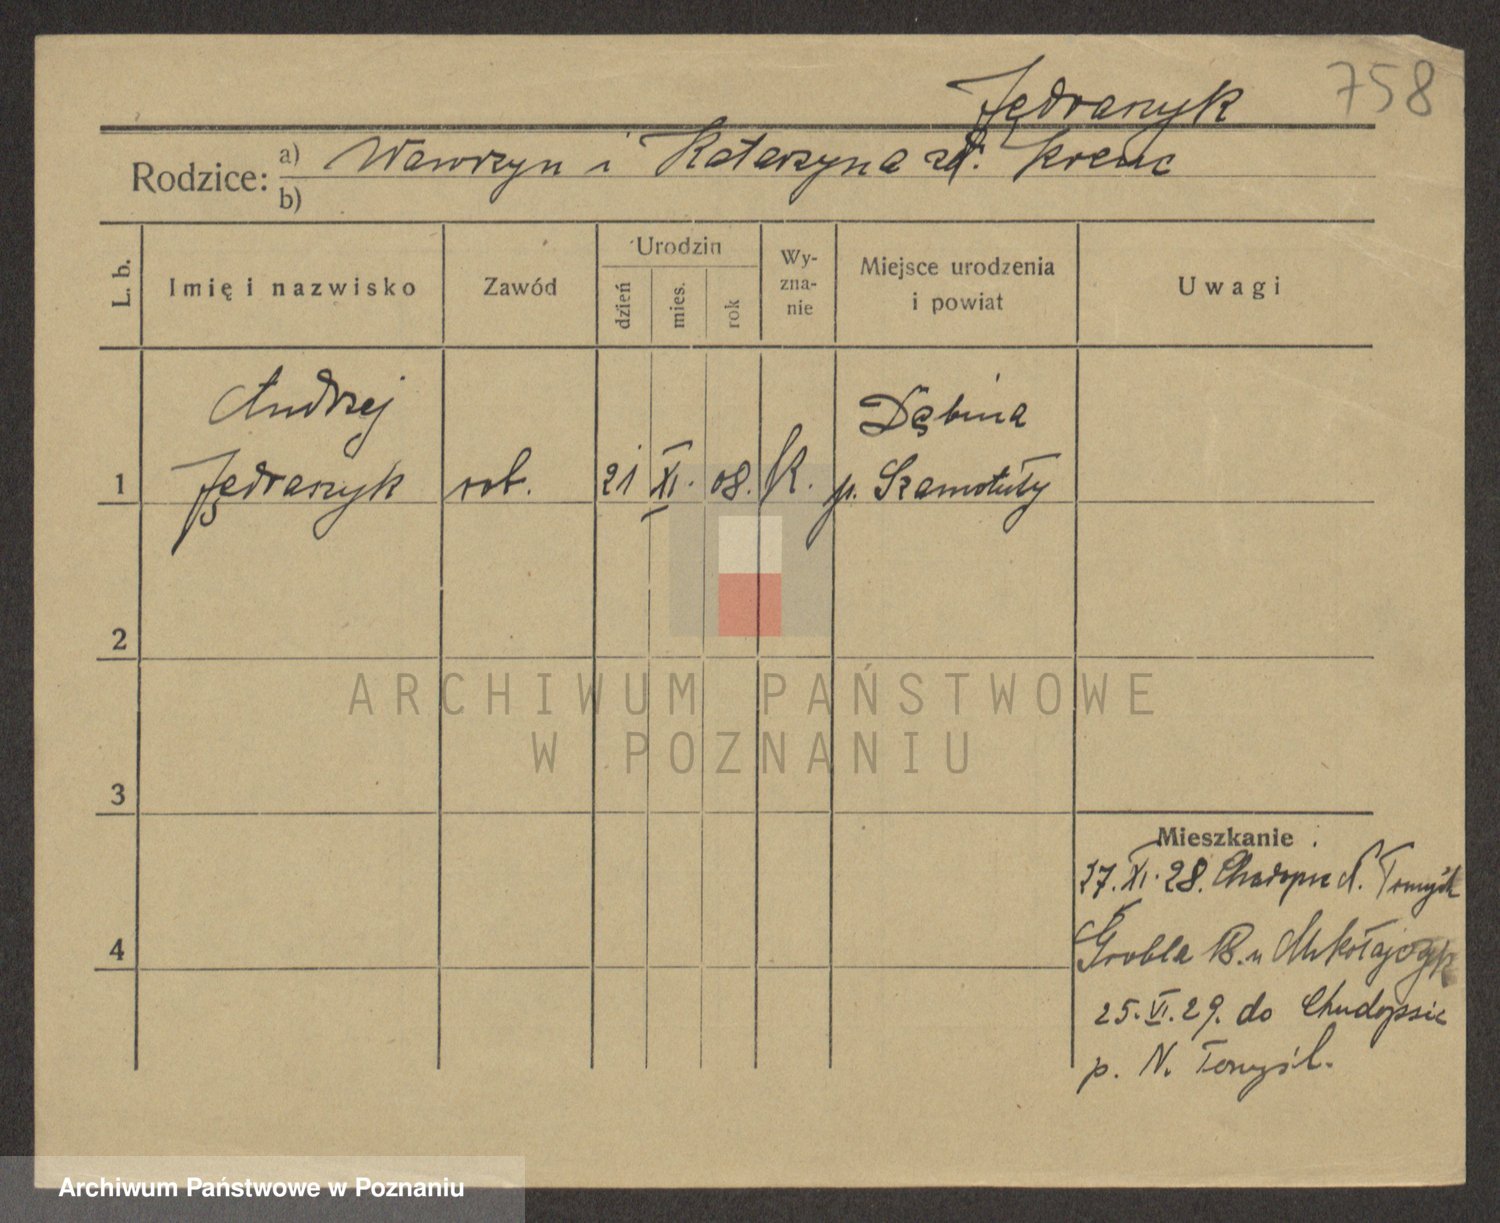 758
Jędraszyk
Rodzice: a) Wawrzyn i Katarzyna zd. Krenc
b)
L. b. Imię i nazwisko Zawód Urodzin dzień mies. rok Wy-zna-nie Miejsce urodzenia i powiat Uwagi
Andrzej Dębina
1 Jędraszyk rob. 21 XI. 08. K. p. Szamotuły
2
ARCHIWUM PAŃSTWOWE
W POZNANIU
3
Mieszkanie
27. XI. 28. N. Tomyśl
4 Grobla B. u Mikołajczyk
25. VI. 29. do
p. N. Tomyśl.
Archiwum Państwowe w Poznaniu